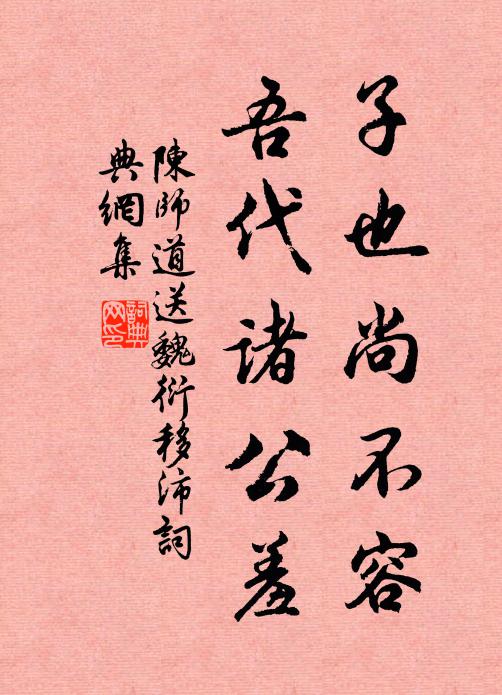 子也尚不容
吾代诸公羞
陳師道送魏衍移沛詞
典網集
詞典
网印